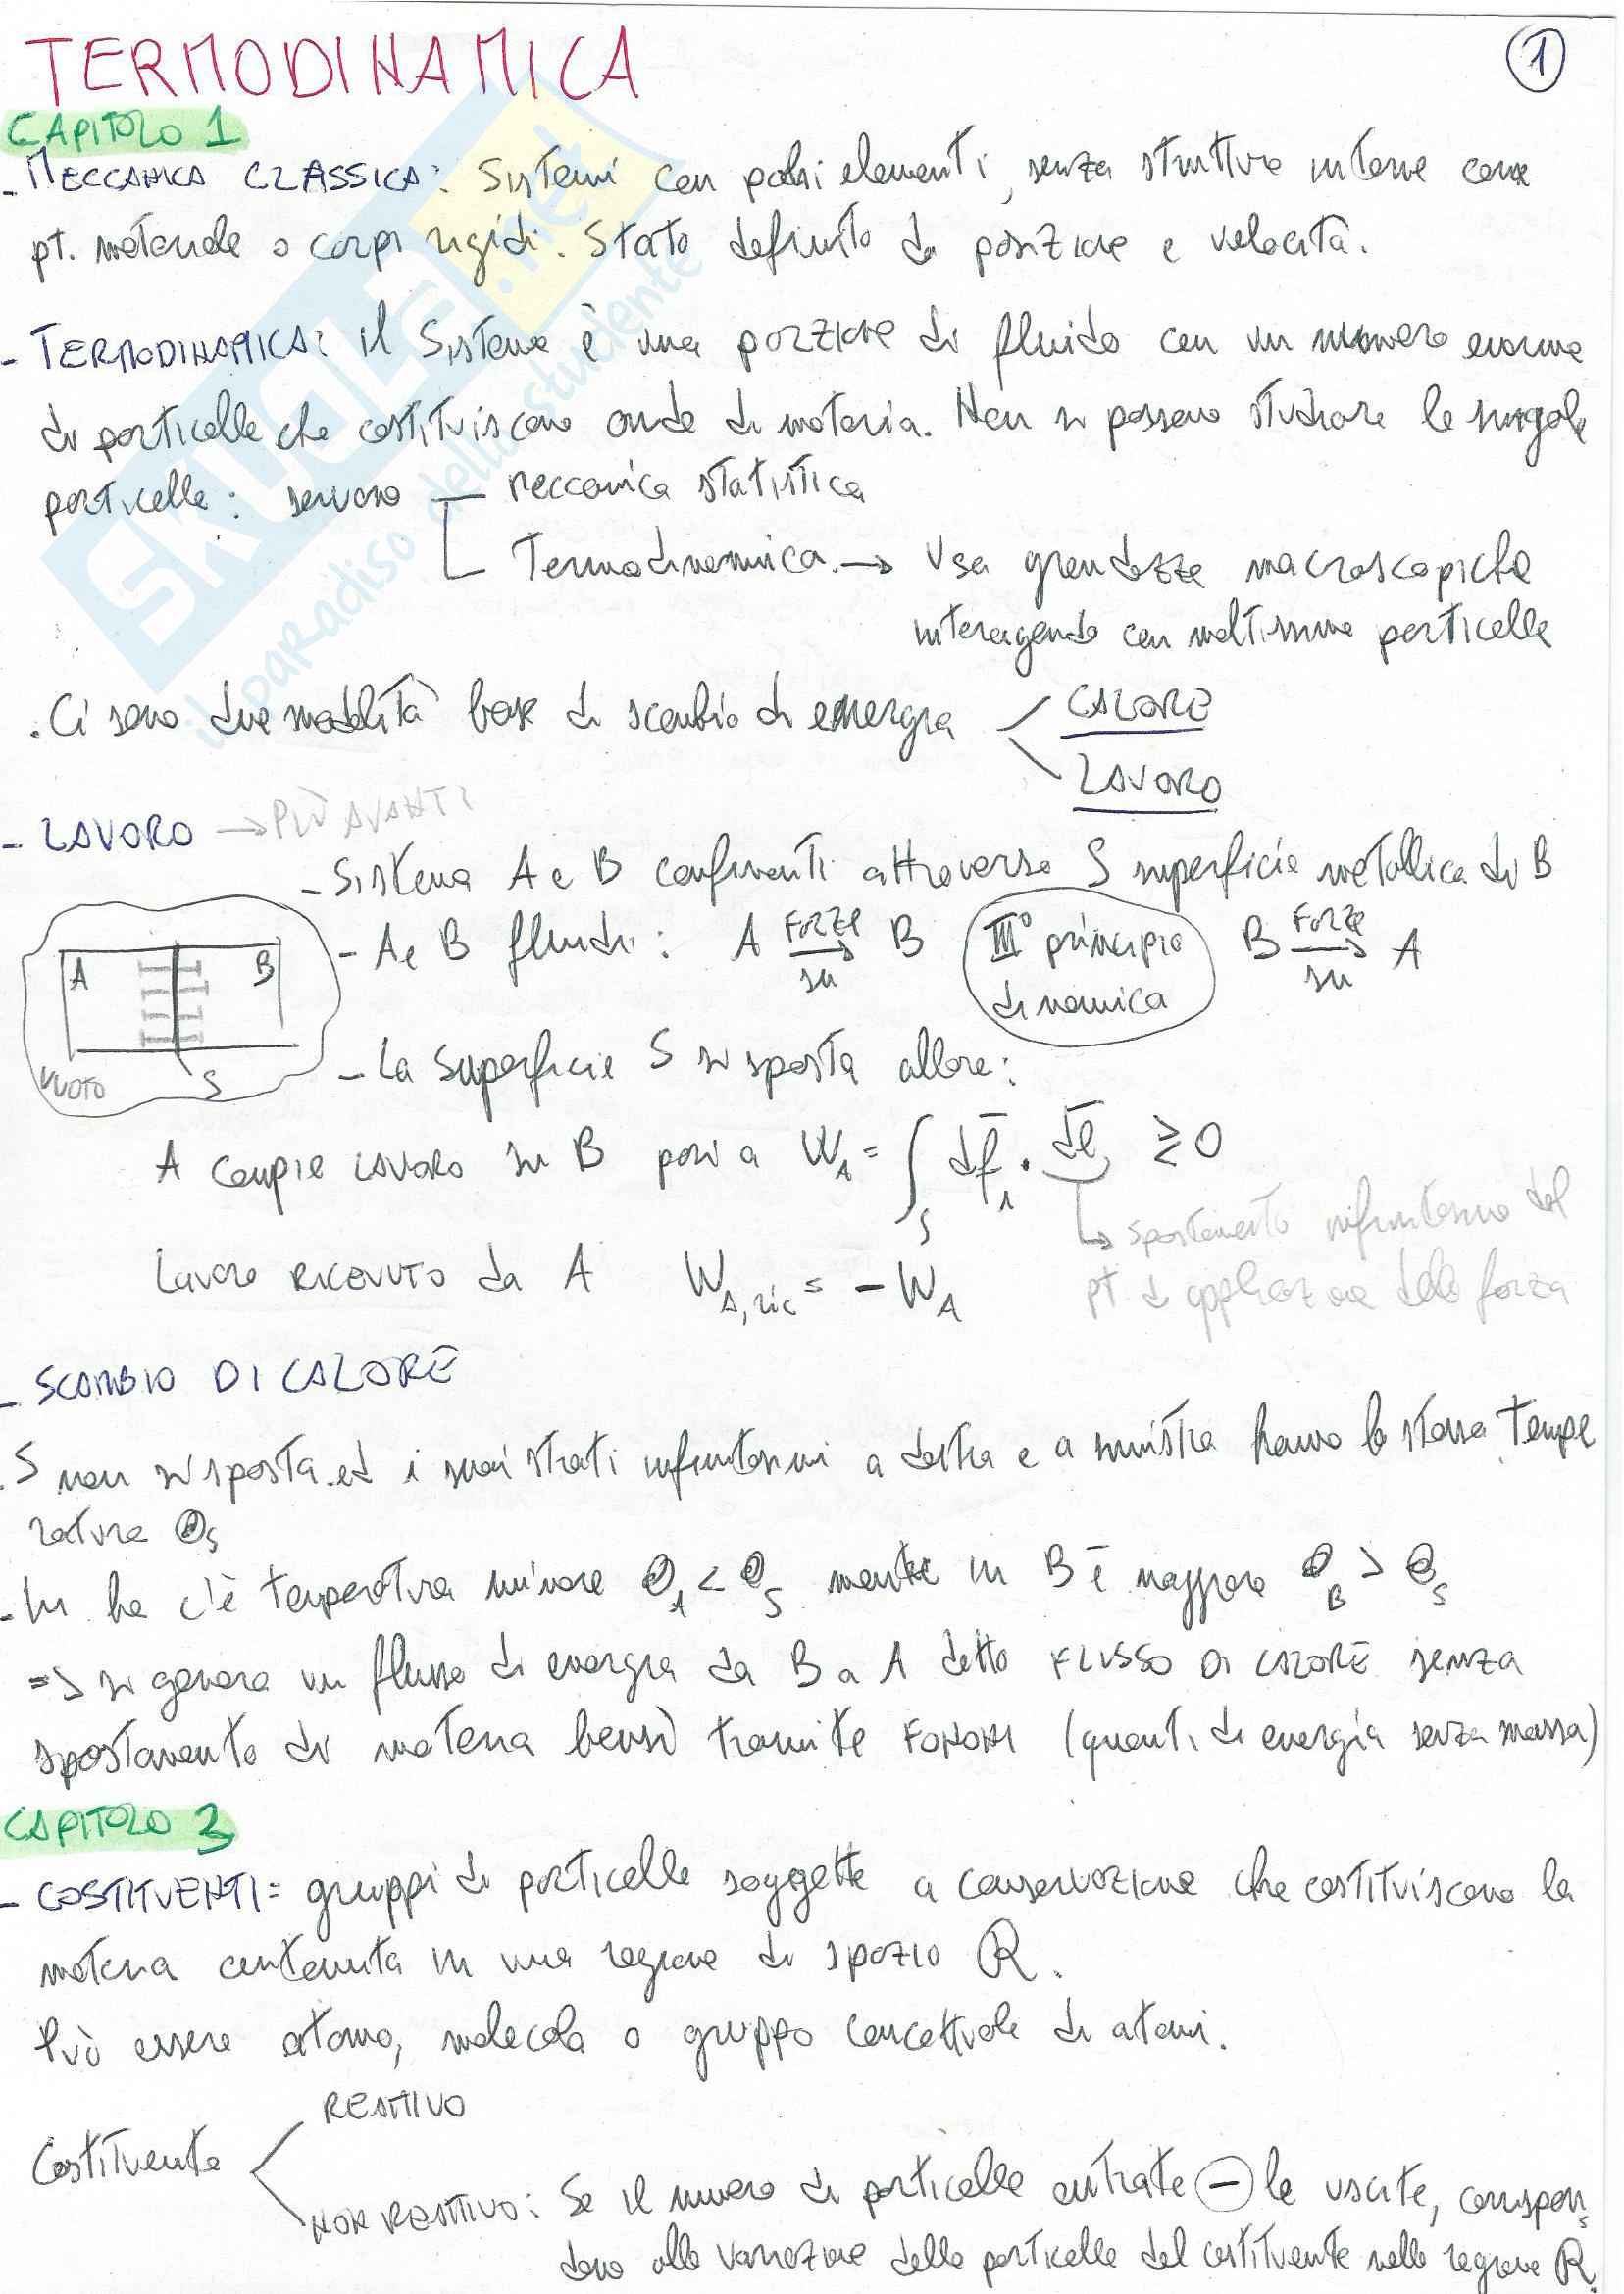 TERMODINAMICA
1
CAPITOLO 1
- MECCANICA CLASSICA: Sistemi con pochi elementi, senza strutture interne come
pt. materiale o corpi rigidi. Stato definito da posizione e velocità.
- TERMODINAMICA: il Sistema è una porzione di fluido con un numero enorme
di particelle che costituiscono onde di materia. Non si possono studiare le singole
particelle: servono - meccanica statistica
Termodinamica → Usa grandezze macroscopiche
interagendo con moltissime particelle
. Ci sono due modalità base di scambio di energia
CALORE
LAVORO
- LAVORO → PIÙ AVANTI
- Sistema A e B confinanti attraverso S superficie metallica di B
- A e B fluidi: A FORZE su → B III° principio dinamica B FORZE su → A
A B
VUOTO S
- La superficie S si sposta allora:
A compie LAVORO su B pari a W_A = ∫_S df̄_A · dl̄ ≥ 0
↳ spostamento infinitesimo del
pt. di applicazione della forza
Lavoro RICEVUTO da A W_A,ric = - W_A
- SCAMBIO DI CALORE
. S non si sposta ed i suoi strati infinitesimi a destra e a sinistra hanno la stessa tempe
ratura Θ_S
- In ha c'è temperatura minore Θ_A < Θ_S mentre in B è maggiore Θ_B > Θ_S
=> si genera un flusso di energia da B a A detto FLUSSO DI CALORE senza
spostamento di materia bensì tramite FONONI (quanti di energia senza massa)
CAPITOLO 3
- COSTITUENTI = gruppi di particelle soggette a conservazione che costituiscono la
materia contenuta in una regione di spazio R.
Può essere atomo, molecola o gruppo concettuale di atomi.
Costituente
REATTIVO
NON REATTIVO: Se il numero di particelle entrate - le uscite, corrispon
dono alla variazione delle particelle del costituente nella regione R.
il paradiso dello studente
SKUOLA.net